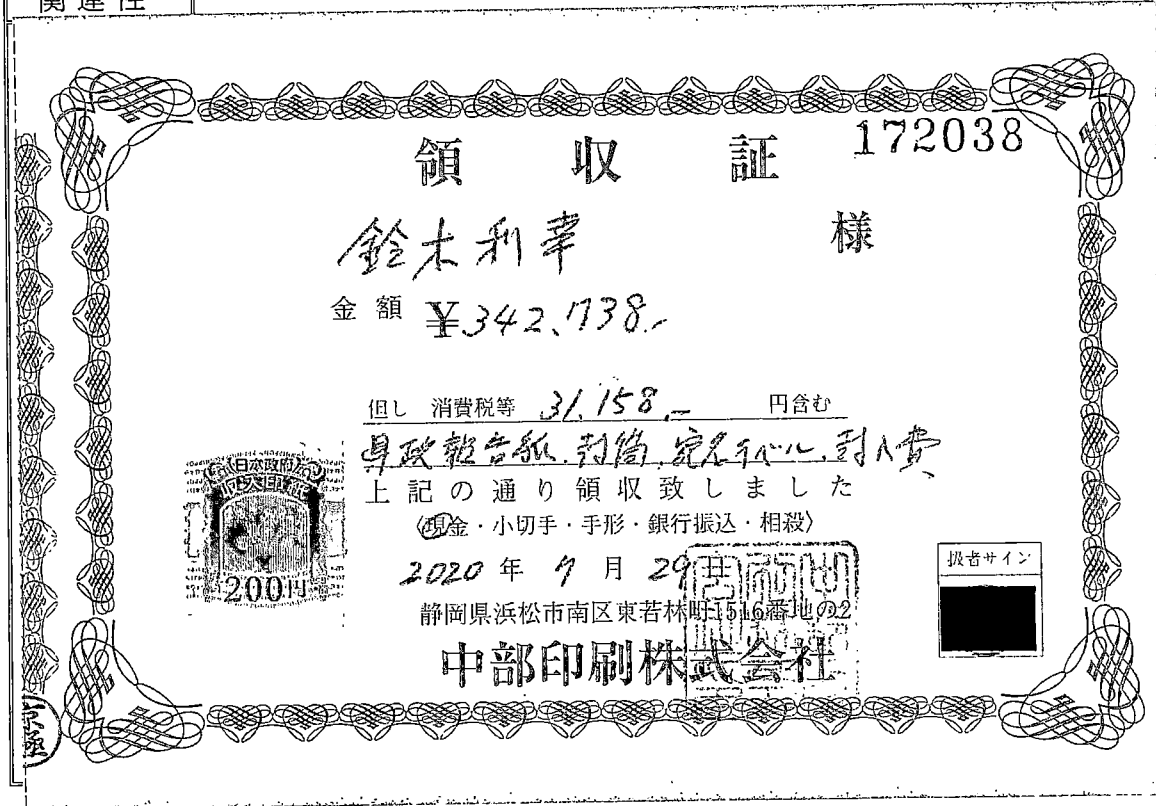 関連性
領収証
172038
鈴木利幸 様
金額 ¥342,738.-
但し 消費税等 31,158.- 円含む
県政報告紙、封筒、宛名ラベル、封入費
上記の通り領収致しました
〈現金・小切手・手形・銀行振込・相殺〉
2020年 7月 29日
静岡県浜松市南区東若林町1516番地の2
中部印刷株式会社
扱者サイン
日本政府
収入印紙
200円